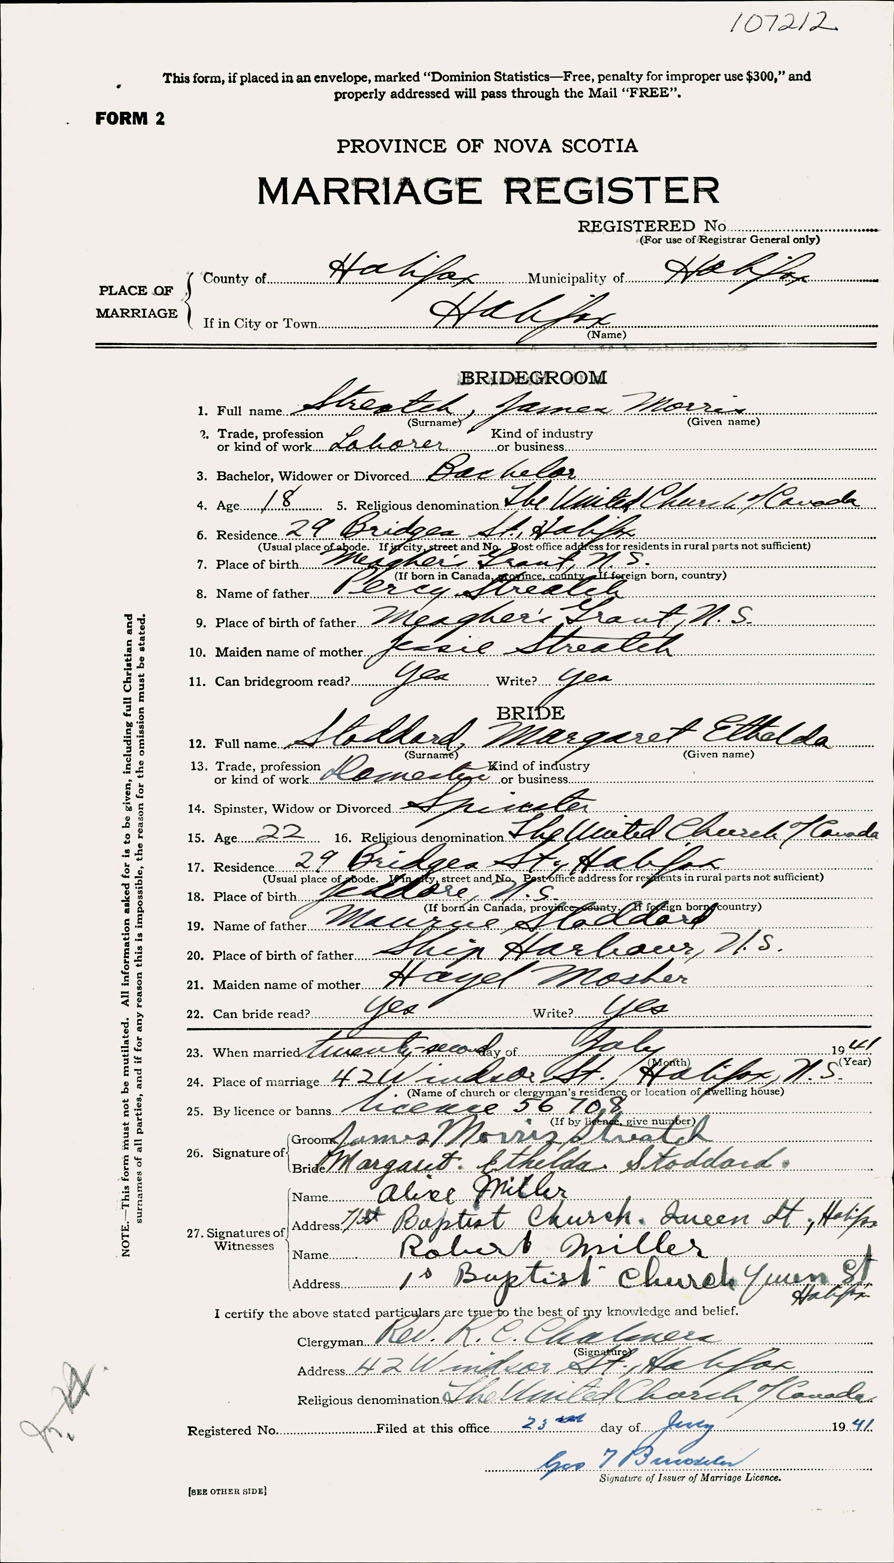 107212
This form, if placed in an envelope, marked “Dominion Statistics—Free, penalty for improper use $300,” and
properly addressed will pass through the Mail “FREE”.
FORM 2
PROVINCE OF NOVA SCOTIA
MARRIAGE REGISTER
REGISTERED No
(For use of Registrar General only)
PLACE OF MARRIAGE
County of Halifax Municipality of Halifax
If in City or Town Halifax
(Name)
BRIDEGROOM
1. Full name Streatch, James Morris
(Surname) (Given name)
2. Trade, profession or kind of work Laborer Kind of industry or business
3. Bachelor, Widower or Divorced Bachelor
4. Age 18 5. Religious denomination The United Church of Canada
6. Residence 29 Bridges St, Halifax
(Usual place of abode. If in city, street and No. Post office address for residents in rural parts not sufficient)
7. Place of birth Meagher's Grant, N.S.
(If born in Canada, province, county. If foreign born, country)
8. Name of father Percy Streatch
9. Place of birth of father Meagher's Grant, N.S.
10. Maiden name of mother Jessie Streatch
11. Can bridegroom read? Yes Write? Yes
BRIDE
12. Full name Stoddard, Margaret Ethelda
(Surname) (Given name)
13. Trade, profession or kind of work Domestic Kind of industry or business
14. Spinster, Widow or Divorced Spinster
15. Age 22 16. Religious denomination The United Church of Canada
17. Residence 29 Bridges St, Halifax
(Usual place of abode. If in city, street and No. Post office address for residents in rural parts not sufficient)
18. Place of birth Jeddore, N.S.
(If born in Canada, province, county. If foreign born, country)
19. Name of father Stoddard
20. Place of birth of father Ship Harbour, N.S.
21. Maiden name of mother Hazel Mosher
22. Can bride read? Yes Write? Yes
23. When married twenty-second day of July 1941
(Month) (Year)
24. Place of marriage 42 Windsor St., Halifax, N.S.
(Name of church or clergyman's residence or location of dwelling house)
25. By licence or banns license 56708
(If by licence, give number)
26. Signature of
Groom James Morris Streatch
Bride Margaret Ethelda Stoddard.
27. Signatures of Witnesses
Name Alice Miller
Address 1st Baptist Church. Queen St, Halifax
Name Robert Miller
Address 1st Baptist Church Queen St
Halifax
I certify the above stated particulars are true to the best of my knowledge and belief.
Clergyman Rev. K. C. Chalmers
(Signature)
Address 42 Windsor St, Halifax
Religious denomination The United Church of Canada
Registered No. Filed at this office 23rd day of July 1941
Geo T
Signature of Issuer of Marriage Licence.
[SEE OTHER SIDE]
NOTE.—This form must not be mutilated. All information asked for is to be given, including full Christian and
surnames of all parties, and if for any reason this is impossible, the reason for the omission must be stated.